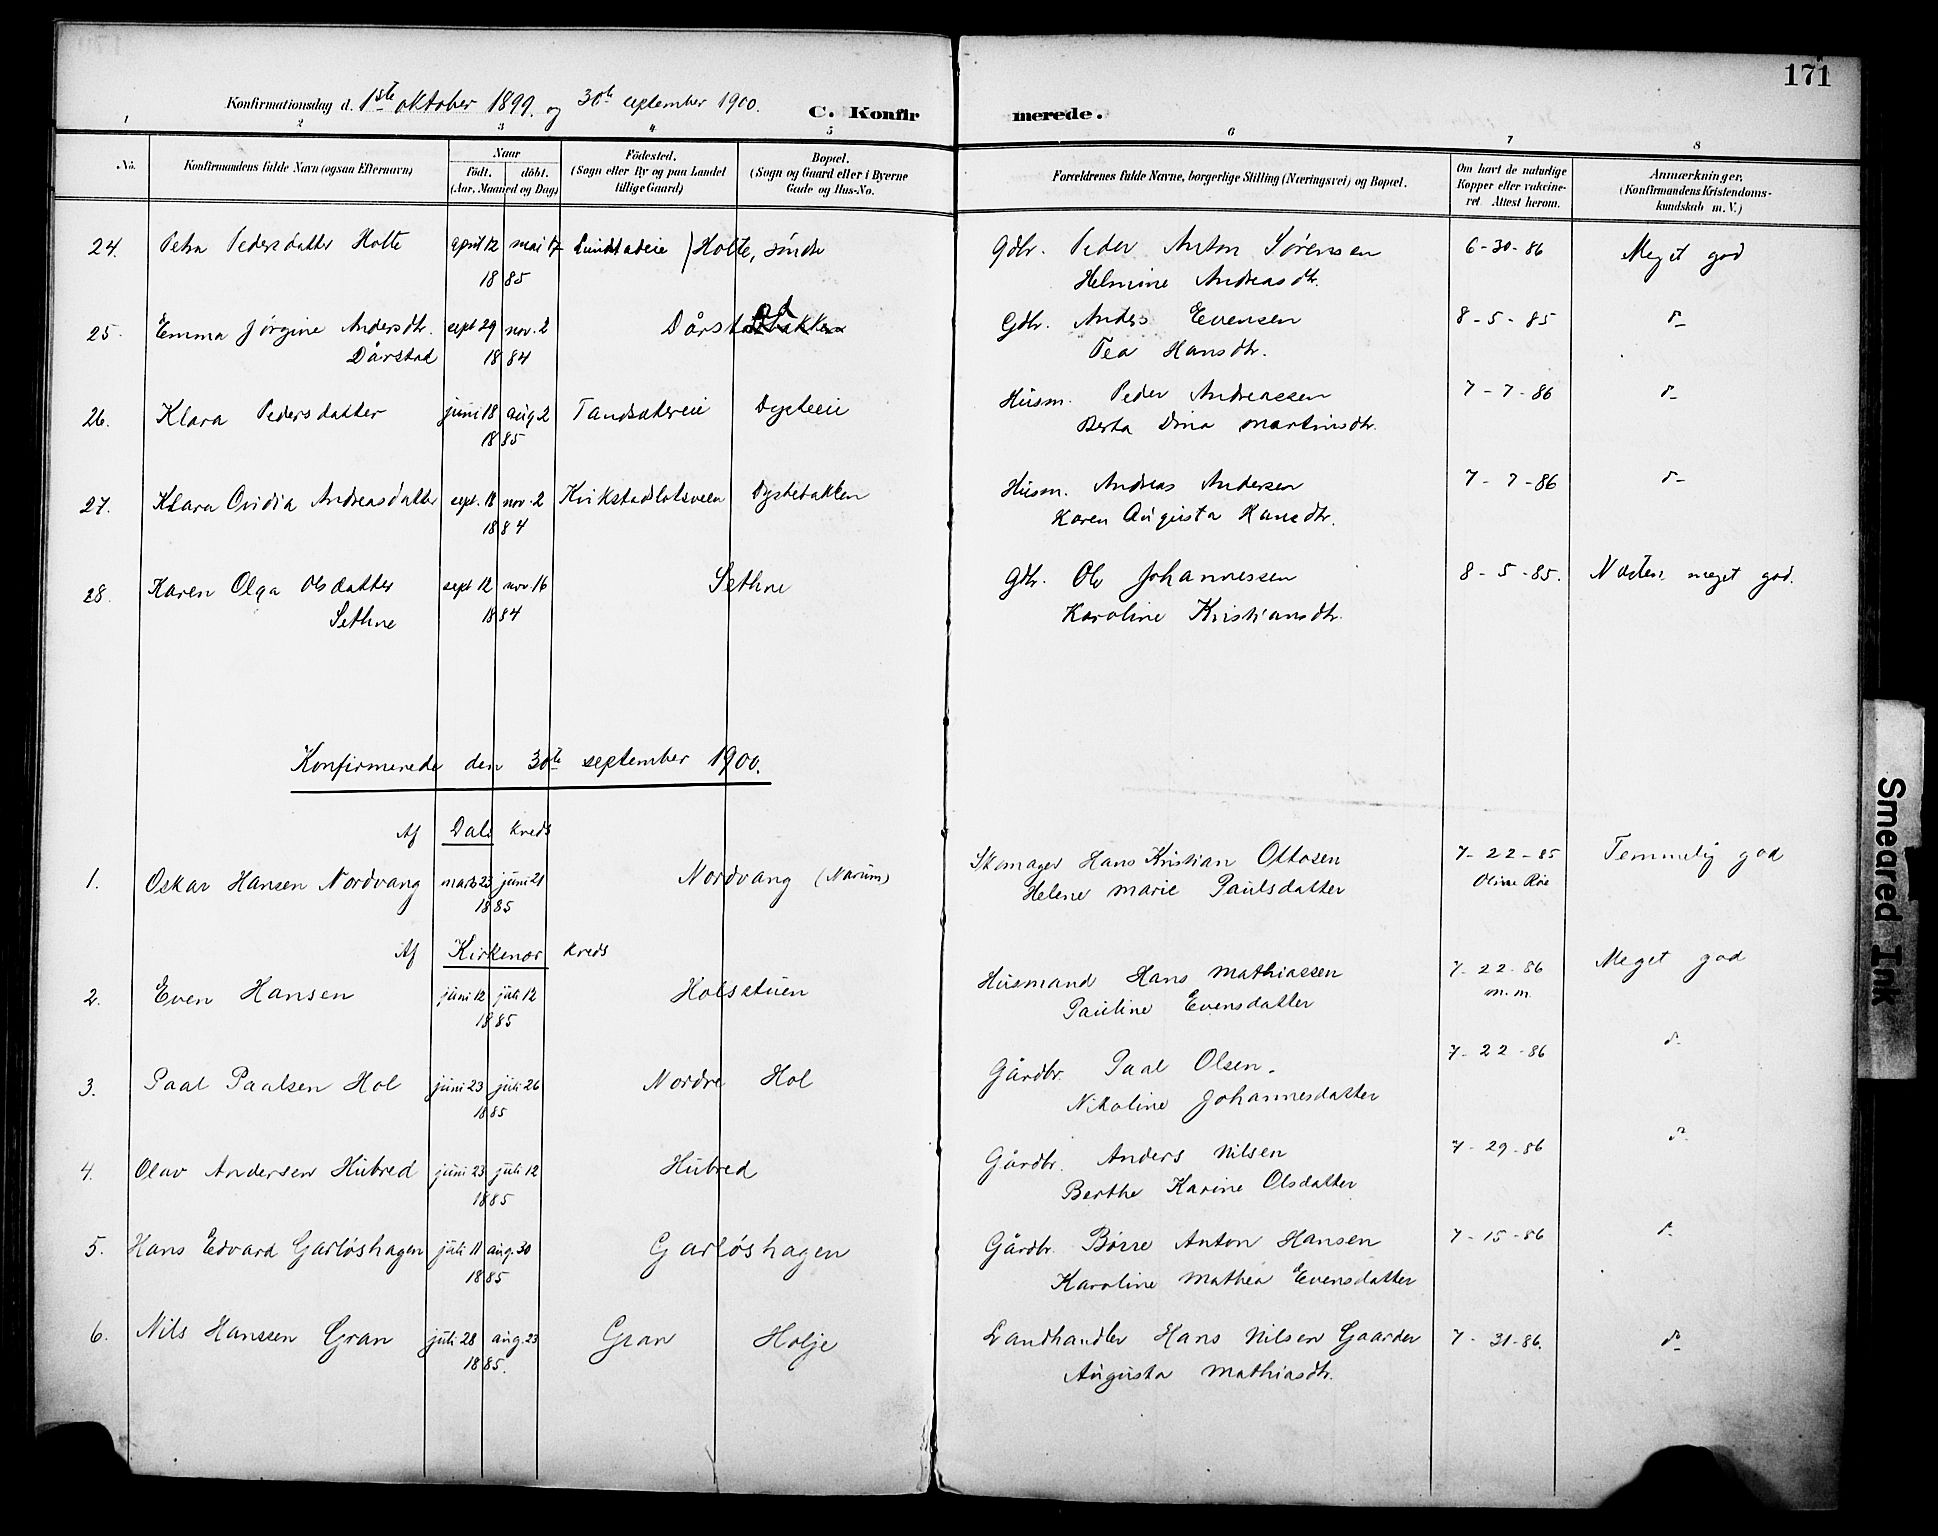 171
Konfirmationsdag d. 1ste oktober 1899. og 30te september 1900.
C. Konfirmerede.
1 2 3 4 5 6 7 8
No.
Konfirmandens fulde Navn (ogsaa Efternavn)
Naar
födt. döbt.
(Aar, Maaned og Dag)
Födested.
(Sogn eller By og paa Landet
tillige Gaard)
Bopæl.
(Sogn og Gaard eller i Byerne
Gade og Hus-No.
Forældrenes fulde Navne, borgerlige Stilling (Næringsvei) og Bopæl.
Om havt de naturlige
Kopper eller vakcine-
ret. Attest herom.
Anmærkninger,
(Konfirmandens Kristendoms-
kundskab m. V.)
24. Petra Pedersdatter Holte april 12 mai 17 Holte, søndre Gdbr. Peder Anton Sørensen 6-30-86 Meget god
1885 Helmine Andreasdtr.
25. Emma Jørgine Andersdtr. sept 29 nov. 2 Gdbr. Anders Evensen 8-5-85 do
Dårstad 1884 Tea Hansdtr.
26. Klara Pedersdatter juni 18 aug 2 Tandsætereie Dysteeie Husm. Peder Andreassen 7-7-86 do
1885 Berta Dina Martinsdtr.
27. Klara Ovidia Andreasdatter sept. 18 nov. 2 Kvikstadslotsveen Dystebakken Husm. Andreas Andersen 7-7-86 do
1884 Karen Augusta Hansdtr.
28. Karen Olga Olsdatter sept 12 nov 16 Sethne Gdbr. Ole Johannessen 8-5-85. Næsten meget god.
Sethne 1884 Karoline Kristiansdtr.
Konfirmerede den 30te september 1900.
Af Dals kreds
1. Oskar Hansen Nordvang marts 23 juni 21 Nordvang (Narum) Skomager Hans Kristian Ottosen 7-22-85 Temmelig god
1885 Helene Marie Paulsdatter Oline Røe
Af Kirkenær kreds
2. Even Hansen juni 12 juli 12 Holsstuen Husmand Hans Mathiassen 7-22-86 Meget god
1885 Pauline Evensdatter m.m.
3. Paal Paalsen Hol juni 23 juli 26 Nordre Hol Gårdbr. Paal Olsen. 7-22-86 do
1885 Nikoline Johannesdatter
4. Olav Andersen Hubred juni 23 juli 12 Hubred Gårdbr. Anders Nilsen 7-29-86 do
1885 Berthe Karine Olsdatter
5. Hans Edvard Garløshagen juli 11 aug. 30 Garløshagen Gårdbr. Børre Anton Hansen 7-15-86 do
1885 Karoline Mathea Evensdatter
6. Nils Hanssen Gran juli 28 aug. 23 Gran Holje Landhandler Hans Nilsen Gaarder 7-31-86. do
1885. Augusta Mathiasdtr.
Smeared Ink